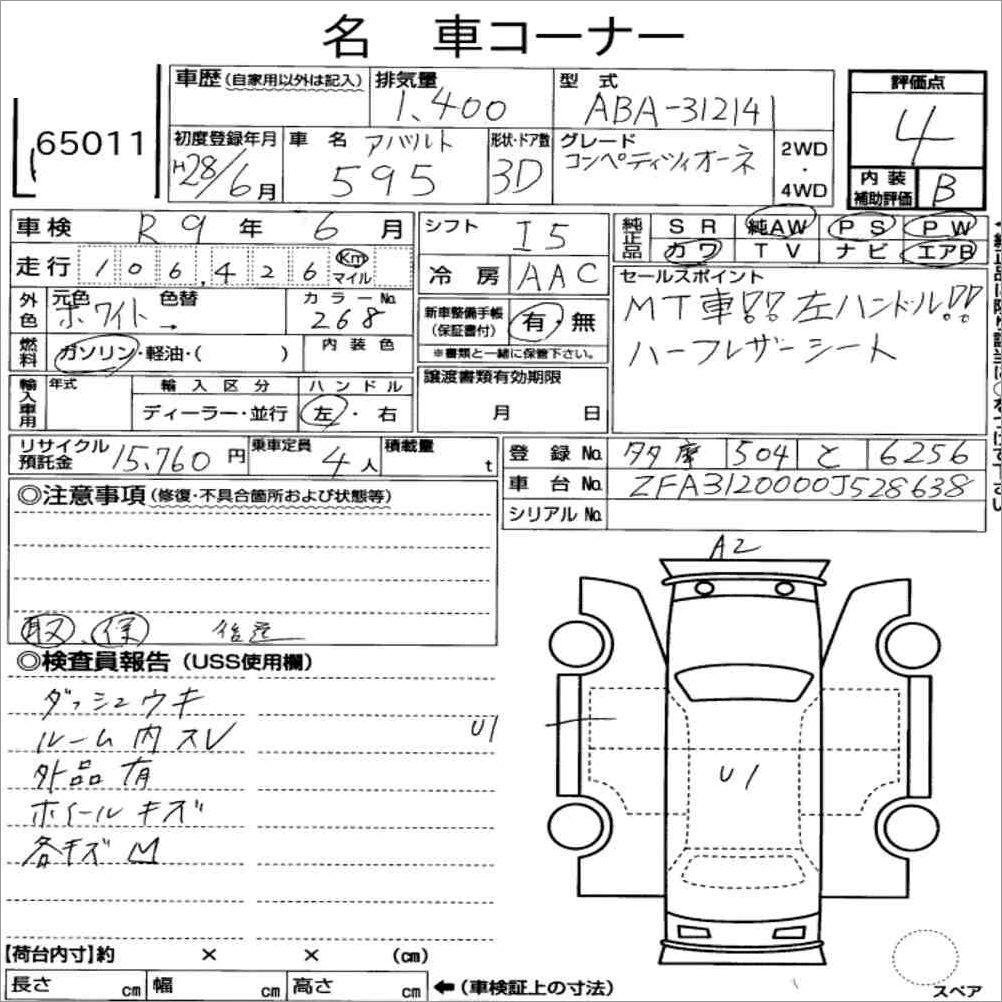 名 車コーナー
65011
車歴 (自家用以外は記入) 排気量 1,400 型式 ABA-312141 評価点 4
初度登録年月 H28/6月 車名 アバルト 595 形状・ドア数 3D グレード コンペティツィオーネ 2WD・4WD 内装補助評価 B
車検 R9年 6月 シフト I5 純正品 SR 純AW PS PW
走行 106,426 Km マイル 冷房 AAC カワ TV ナビ エアB
外色 元色 ホワイト 色替 → カラーNo. 268 新車整備手帳 (保証書付) 有・無 セールスポイント
※書類と一緒に保管下さい。 MT車!! 左ハンドル!!
燃料 ガソリン・軽油・( ) 内装色 ハーフレザーシート
輸入車用 年式 輸入区分 ディーラー・並行 ハンドル 左・右 譲渡書類有効期限 月 日
リサイクル預託金 15,760円 乗車定員 4人 積載量 t 登録No. 多摩 504 と 6256
車台No. ZFA3120000J528638
シリアルNo.
◎注意事項 (修復・不具合箇所および状態等)
取 保 後送
A2
◎検査員報告 (USS使用欄)
ダッシュウキ
ルーム内スレ
U1
外品有
U1
ホイールキズ
各キズ
【荷台内寸】約 × × (cm)
長さ cm 幅 cm 高さ cm ←(車検証上の寸法)
スペア